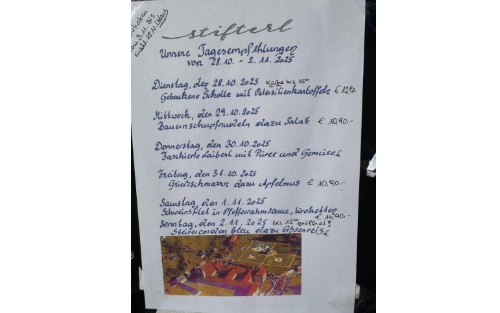 stifterl
Unsere Tagesempfehlungen
von 28.10. - 2.11.2025
Dienstag, den 28.10.2025 Küche bis 15⁰⁰
Gebackene Scholle mit Petersilienkartoffeln €
Mittwoch, den 29.10.2025
Bauernschupfnudeln dazu Salat € 10,90.-
Donnerstag, den 30.10.2025
Faschierte Laibert mit Püree und Gemüse €
Freitag, den 31.10.2025
Grießschmarrn dazu Apfelmus € 10,90.-
Samstag, den 1.11.2025
Schweinsfilet in Pfefferrahmsauce, Kroketten
€ 14,90.-
Sonntag, den 2.11.2025 bis 15⁰⁰ geöffnet!
Steirercordon Bleu dazu Erbsenreis €